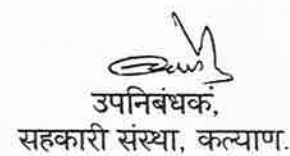 उपनिबंधक,
सहकारी संस्था, कल्याण.